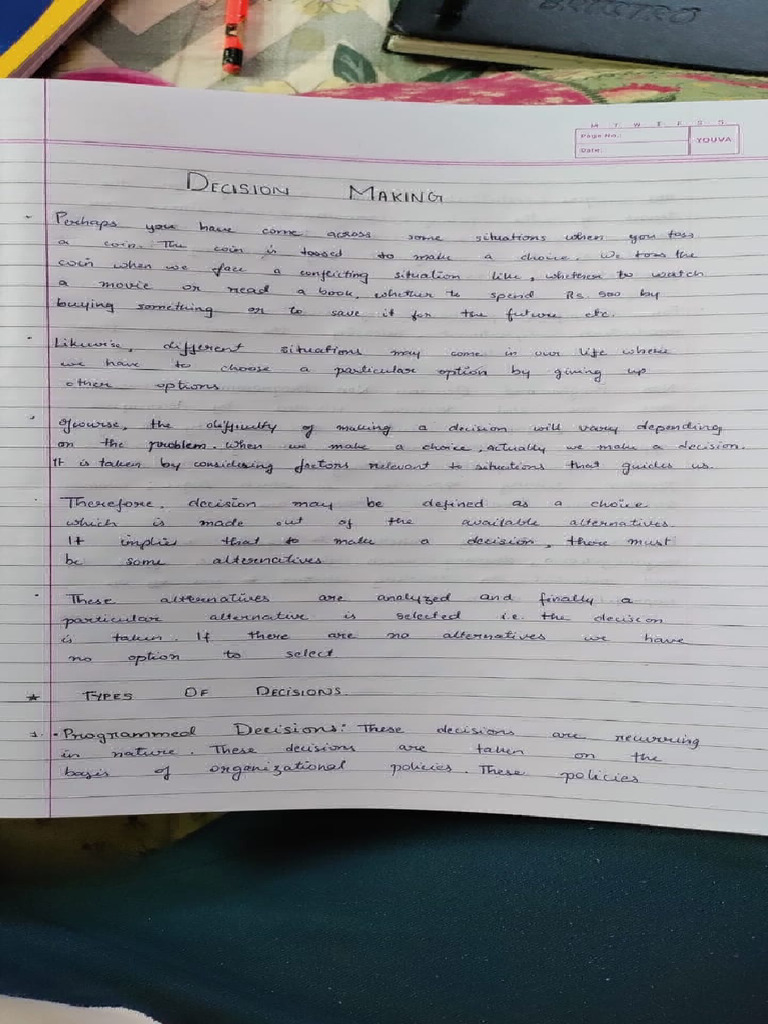 BISTRO
M T W T F S S
Page No.:
Date:
YOUVA
DECISION MAKING
- Perhaps you have come across some situations when you toss
a coin. The coin is tossed to make a choice. We toss the
coin when we face a conflicting situation like, wheteen to watch
a movie or read a book, whether to spend Rs. 500 by
buying something or to save it for the future etc.
- Likewise, different situations may come in our life where
we have to choose a particular option by giving up
other options
- Ofcourse, the difficulty of making a decision will vary depending
on the problem. When we make a choice, actually we make a decision.
It is taken by considering factors relevant to situations that guides us.
- Therefore, decision may be defined as a choice
which is made out of the available alternatives.
It implies that to make a decision, there must
be some alternatives
- These alternatives are analyzed and finally a
particular alternative is selected i.e. the decision
is taken. If there are no alternatives we have
no option to select
* TYPES OF DECISIONS.
1. • Programmed Decisions: These decisions are recurring
in nature. These decisions are taken on the
basis of organizational policies. These policies